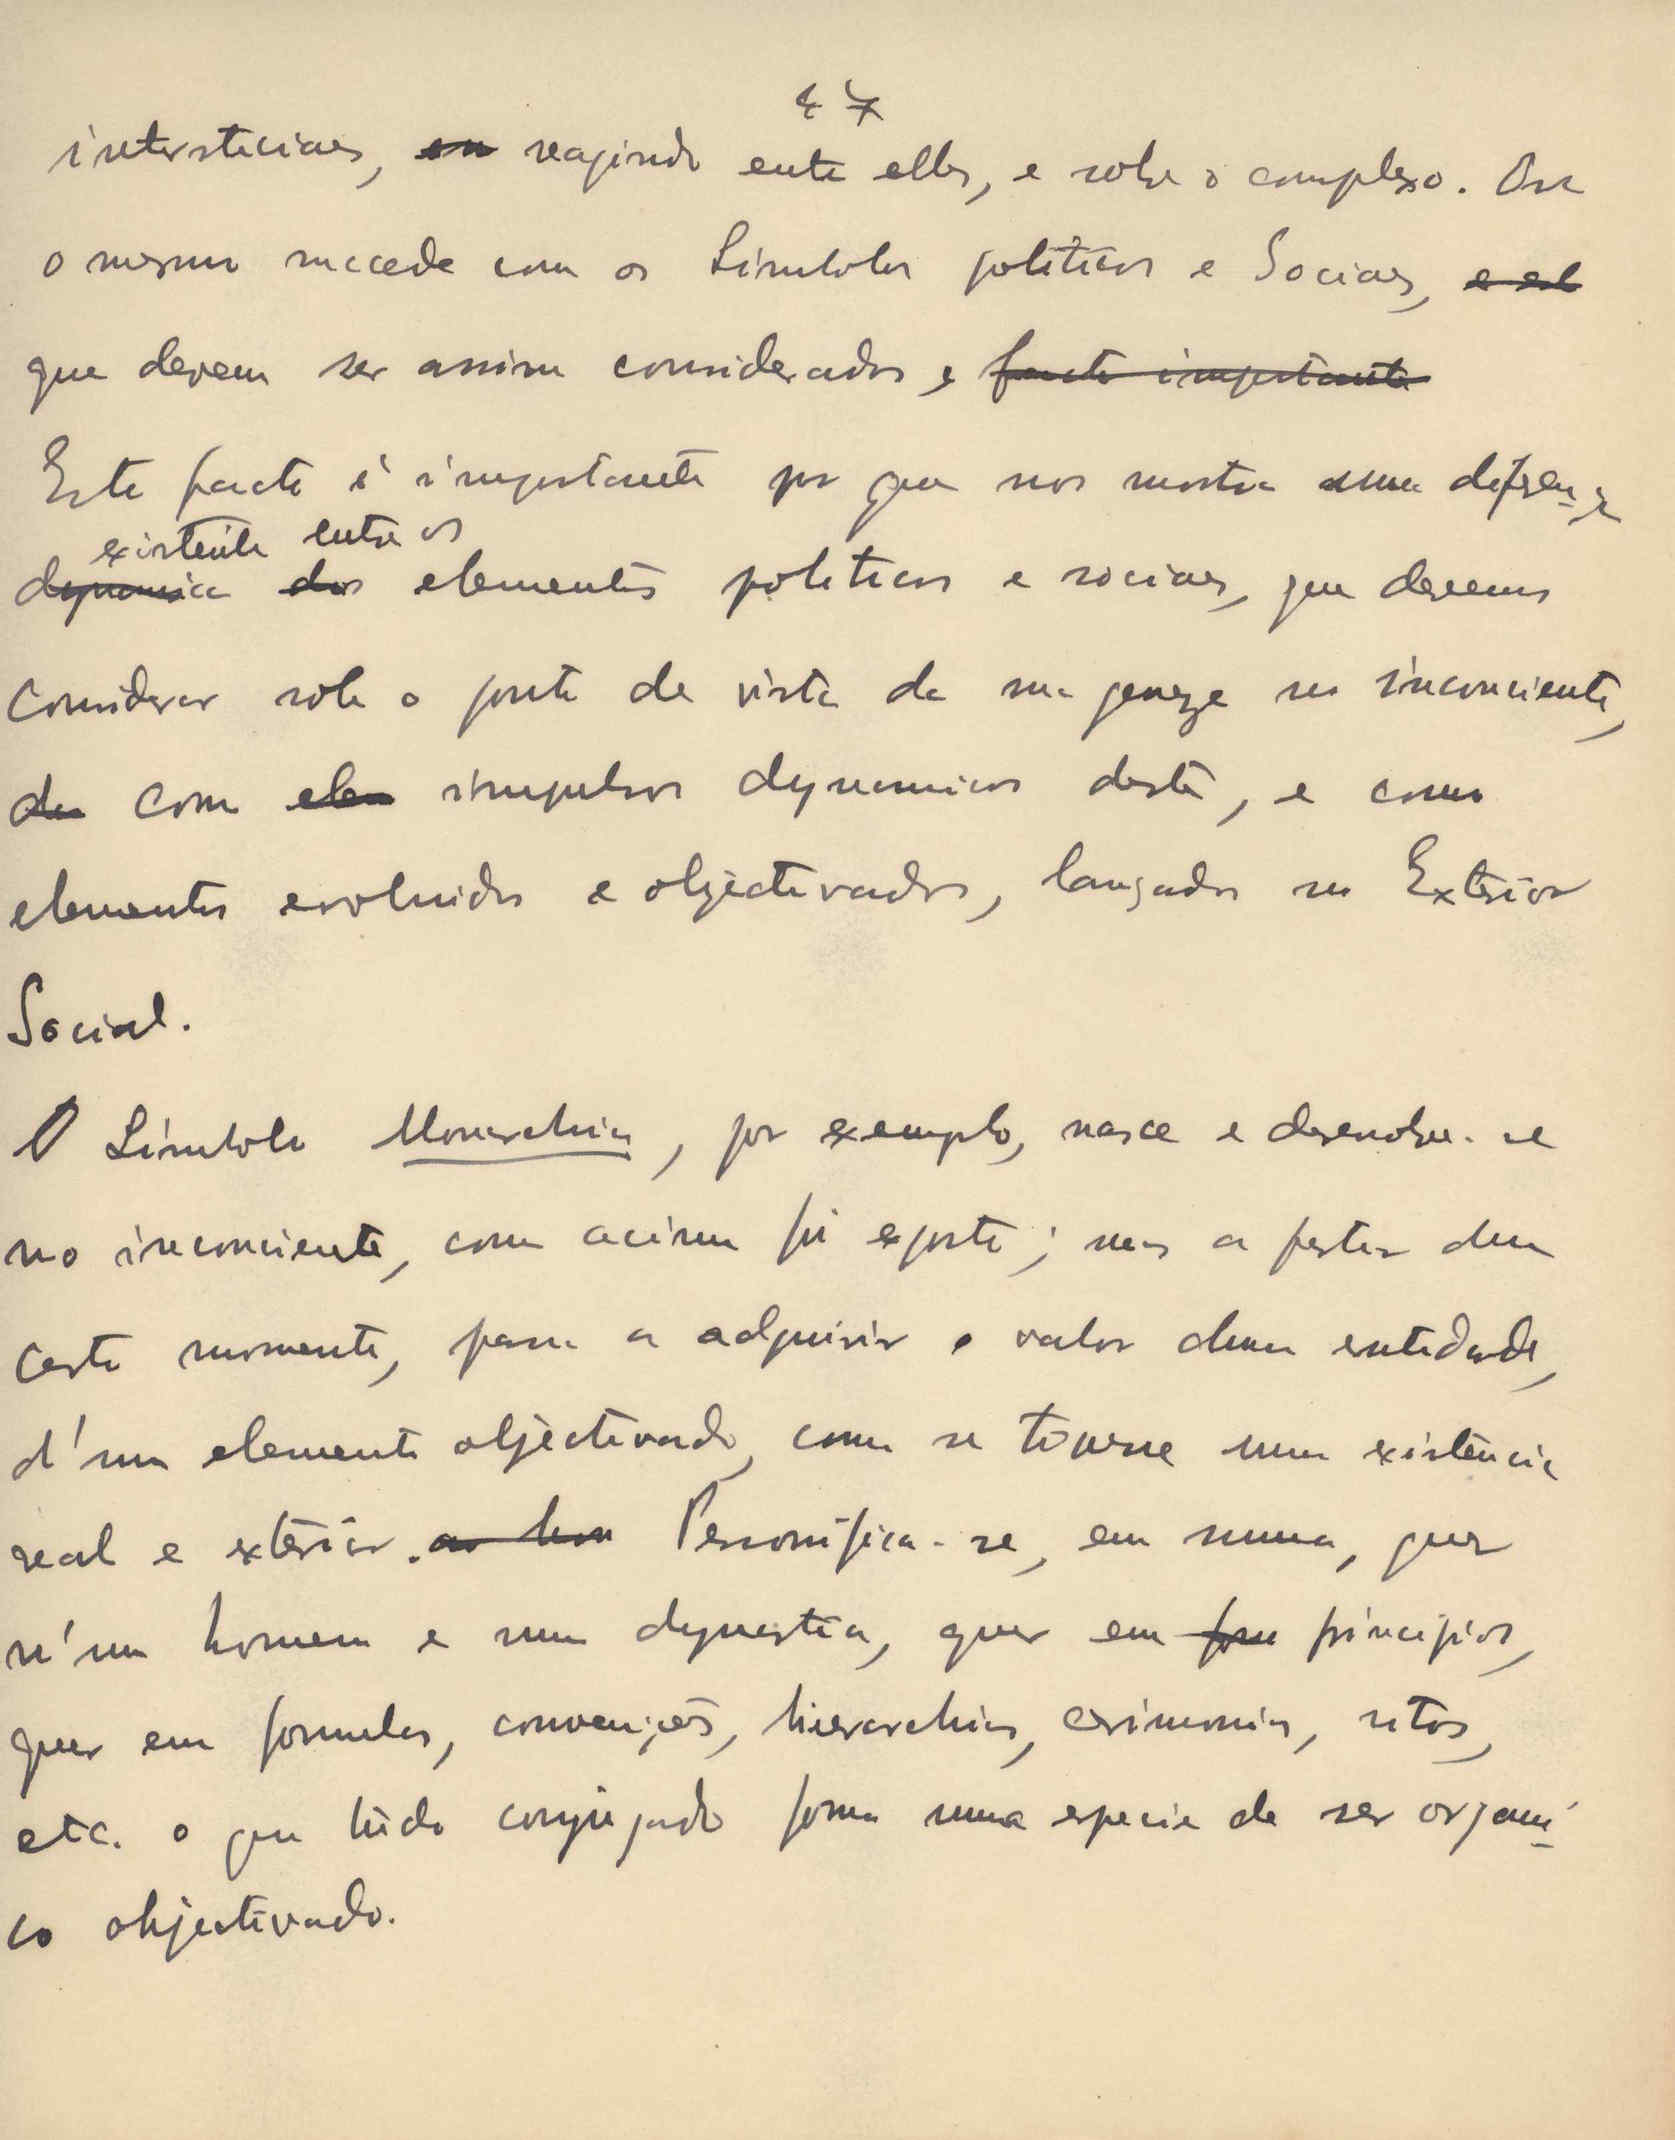 47
intersticiaes, en reagindo entre elles, e sobre o complexo. Ora
o mesmo succede com os Simbolos politicos e Sociaes, e est
que devem ser assim considerados, facto importante
Este facto é importante por que nos mostra uma diferença
existente entre os
dynamica dos elementos politicos e sociaes, que devemos
Considerar sob o ponto de vista da sua geneze no inconciente,
de com impulsos dynamicos deste, e como
elementos evoluidos e objectivados, lançados no Exterior
Social.
O Simbolo Monarchia, por exemplo, nasce e desenvolve-se
no inconciente, como acima foi exposto; mas a partir dum
certo momento, passa a adquirir o valor duma entidade,
d'um elemento objectivado, como se tivesse uma existencia
real e exterior. Personifica-se, em summa, quer
n'um homem e numa dynastia, quer em form principios,
quer em formulas, convenções, hierarchias, cerimonias, ritos,
etc. o que tudo conjugado forma uma especie de ser organi-
co objectivado.